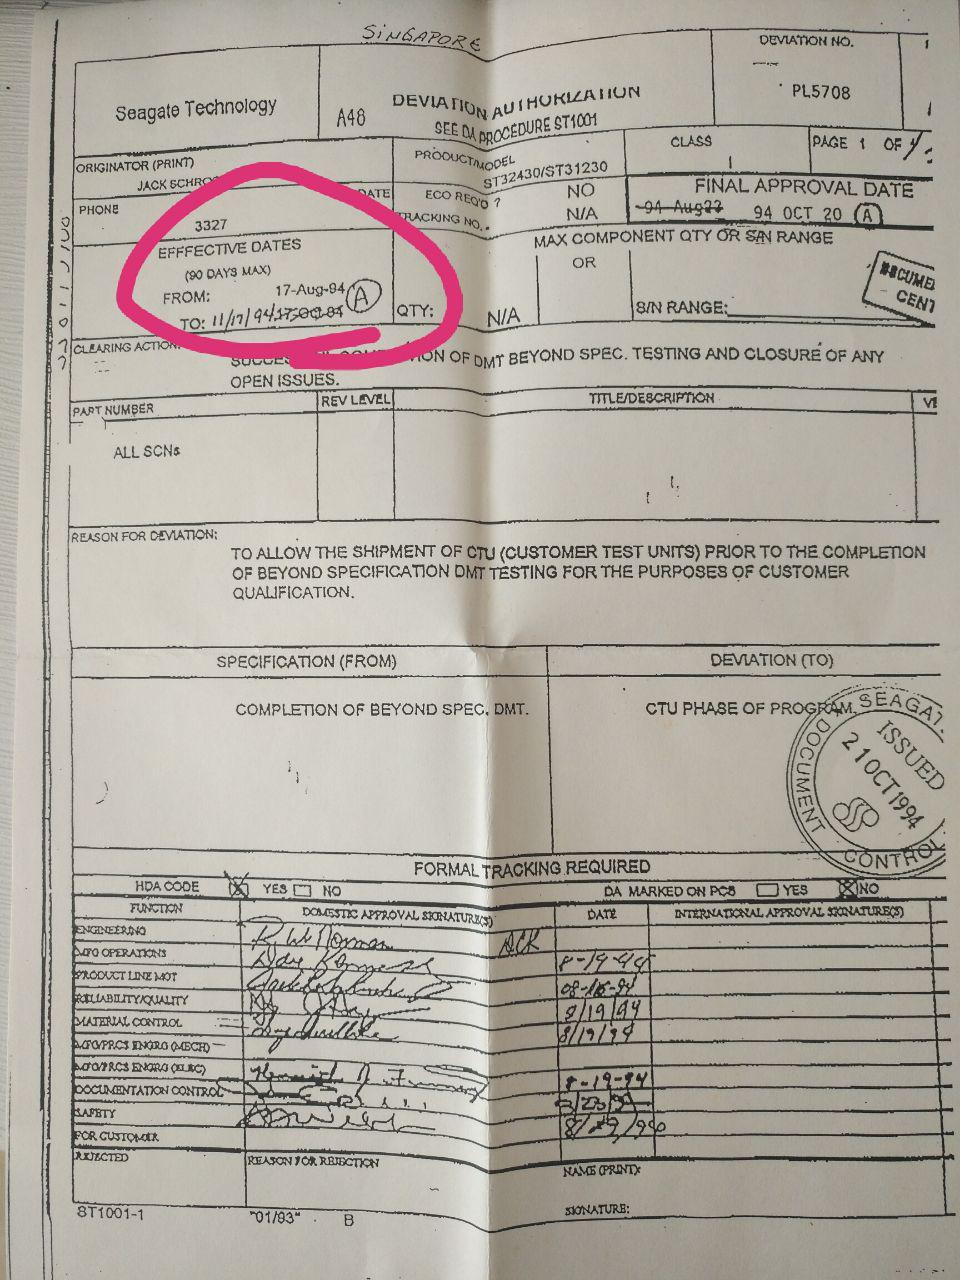 SINGAPORE
Seagate Technology
A48
DEVIATION AUTHORIZATION
SEE DA PROCEDURE ST1001
DEVIATION NO.
PL5708
ORIGINATOR (PRINT)
JACK
PRODUCT/MODEL
ST32430/ST31230
CLASS
I
PAGE 1 OF
PHONE
3327
DATE
ECO REQ'D ?
NO
TRACKING NO.
N/A
FINAL APPROVAL DATE
94 Aug22 94 OCT 20 A
EFFFECTIVE DATES
(90 DAYS MAX)
FROM: 17-Aug-94 A
TO: 11/17/94 17-Oct-94
QTY:
N/A
MAX COMPONENT QTY OR S/N RANGE
OR
S/N RANGE:
CLEARING ACTION:
OF DMT BEYOND SPEC. TESTING AND CLOSURE OF ANY
OPEN ISSUES.
PART NUMBER
REV LEVEL
TITLE/DESCRIPTION
ALL SCNs
REASON FOR DEVIATION:
TO ALLOW THE SHIPMENT OF CTU (CUSTOMER TEST UNITS) PRIOR TO THE COMPLETION
OF BEYOND SPECIFICATION DMT TESTING FOR THE PURPOSES OF CUSTOMER
QUALIFICATION.
SPECIFICATION (FROM)
DEVIATION (TO)
COMPLETION OF BEYOND SPEC. DMT.
CTU PHASE OF PROGRAM.
ISSUED
21 OCT 1994
DOCUMENT CONTROL
FORMAL TRACKING REQUIRED
HDA CODE YES NO
DA MARKED ON PCB YES NO
FUNCTION
DOMESTIC APPROVAL SIGNATURE(S)
DATE
INTERNATIONAL APPROVAL SIGNATURE(S)
ENGINEERING
MFG OPERATIONS
8-19-94
PRODUCT LINE MGT
RELIABILITY/QUALITY
8/19/94
MATERIAL CONTROL
8/19/94
MFG/PRCS ENGRG (MECH)
MFG/PRCS ENGRG (ELEC)
8-19-94
DOCUMENTATION CONTROL
SAFETY
FOR CUSTOMER
REJECTED
REASON FOR REJECTION
NAME (PRINT):
SIGNATURE:
ST1001-1
"01/93" B